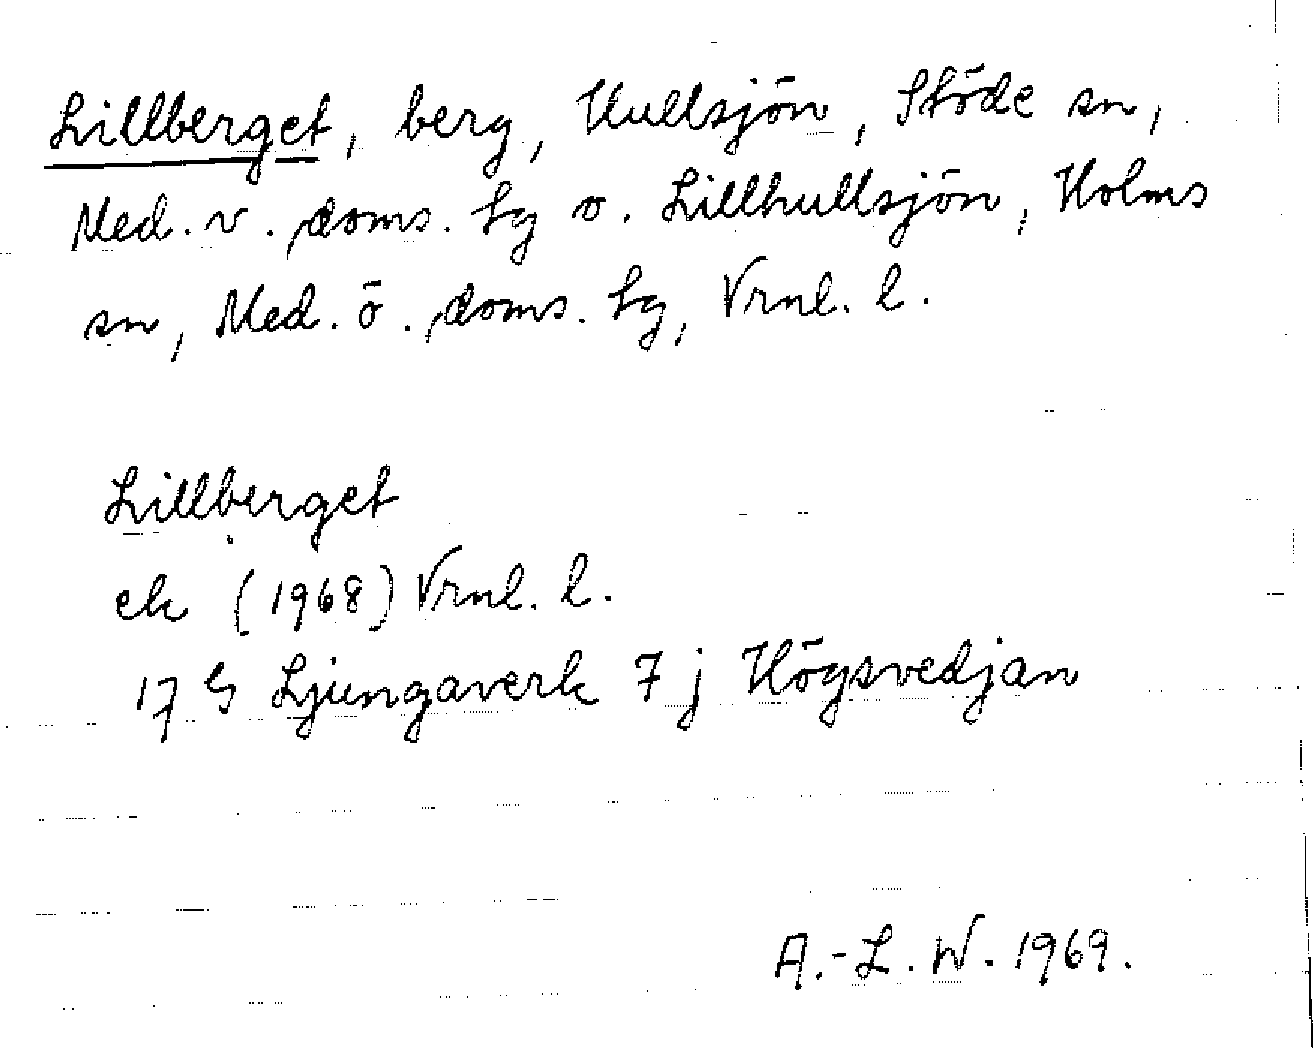 Lillberget, berg, Hullsjön, Stöde sn,
Med. v. doms. tg o. Lillhullsjön, Holms
sn, Med. ö. doms. tg, Vrnl. l.
Lillberget
ek (1968) Vrnl. l.
17 G Ljungaverk 7 j Högsvedjan
A.-L. W. 1969.